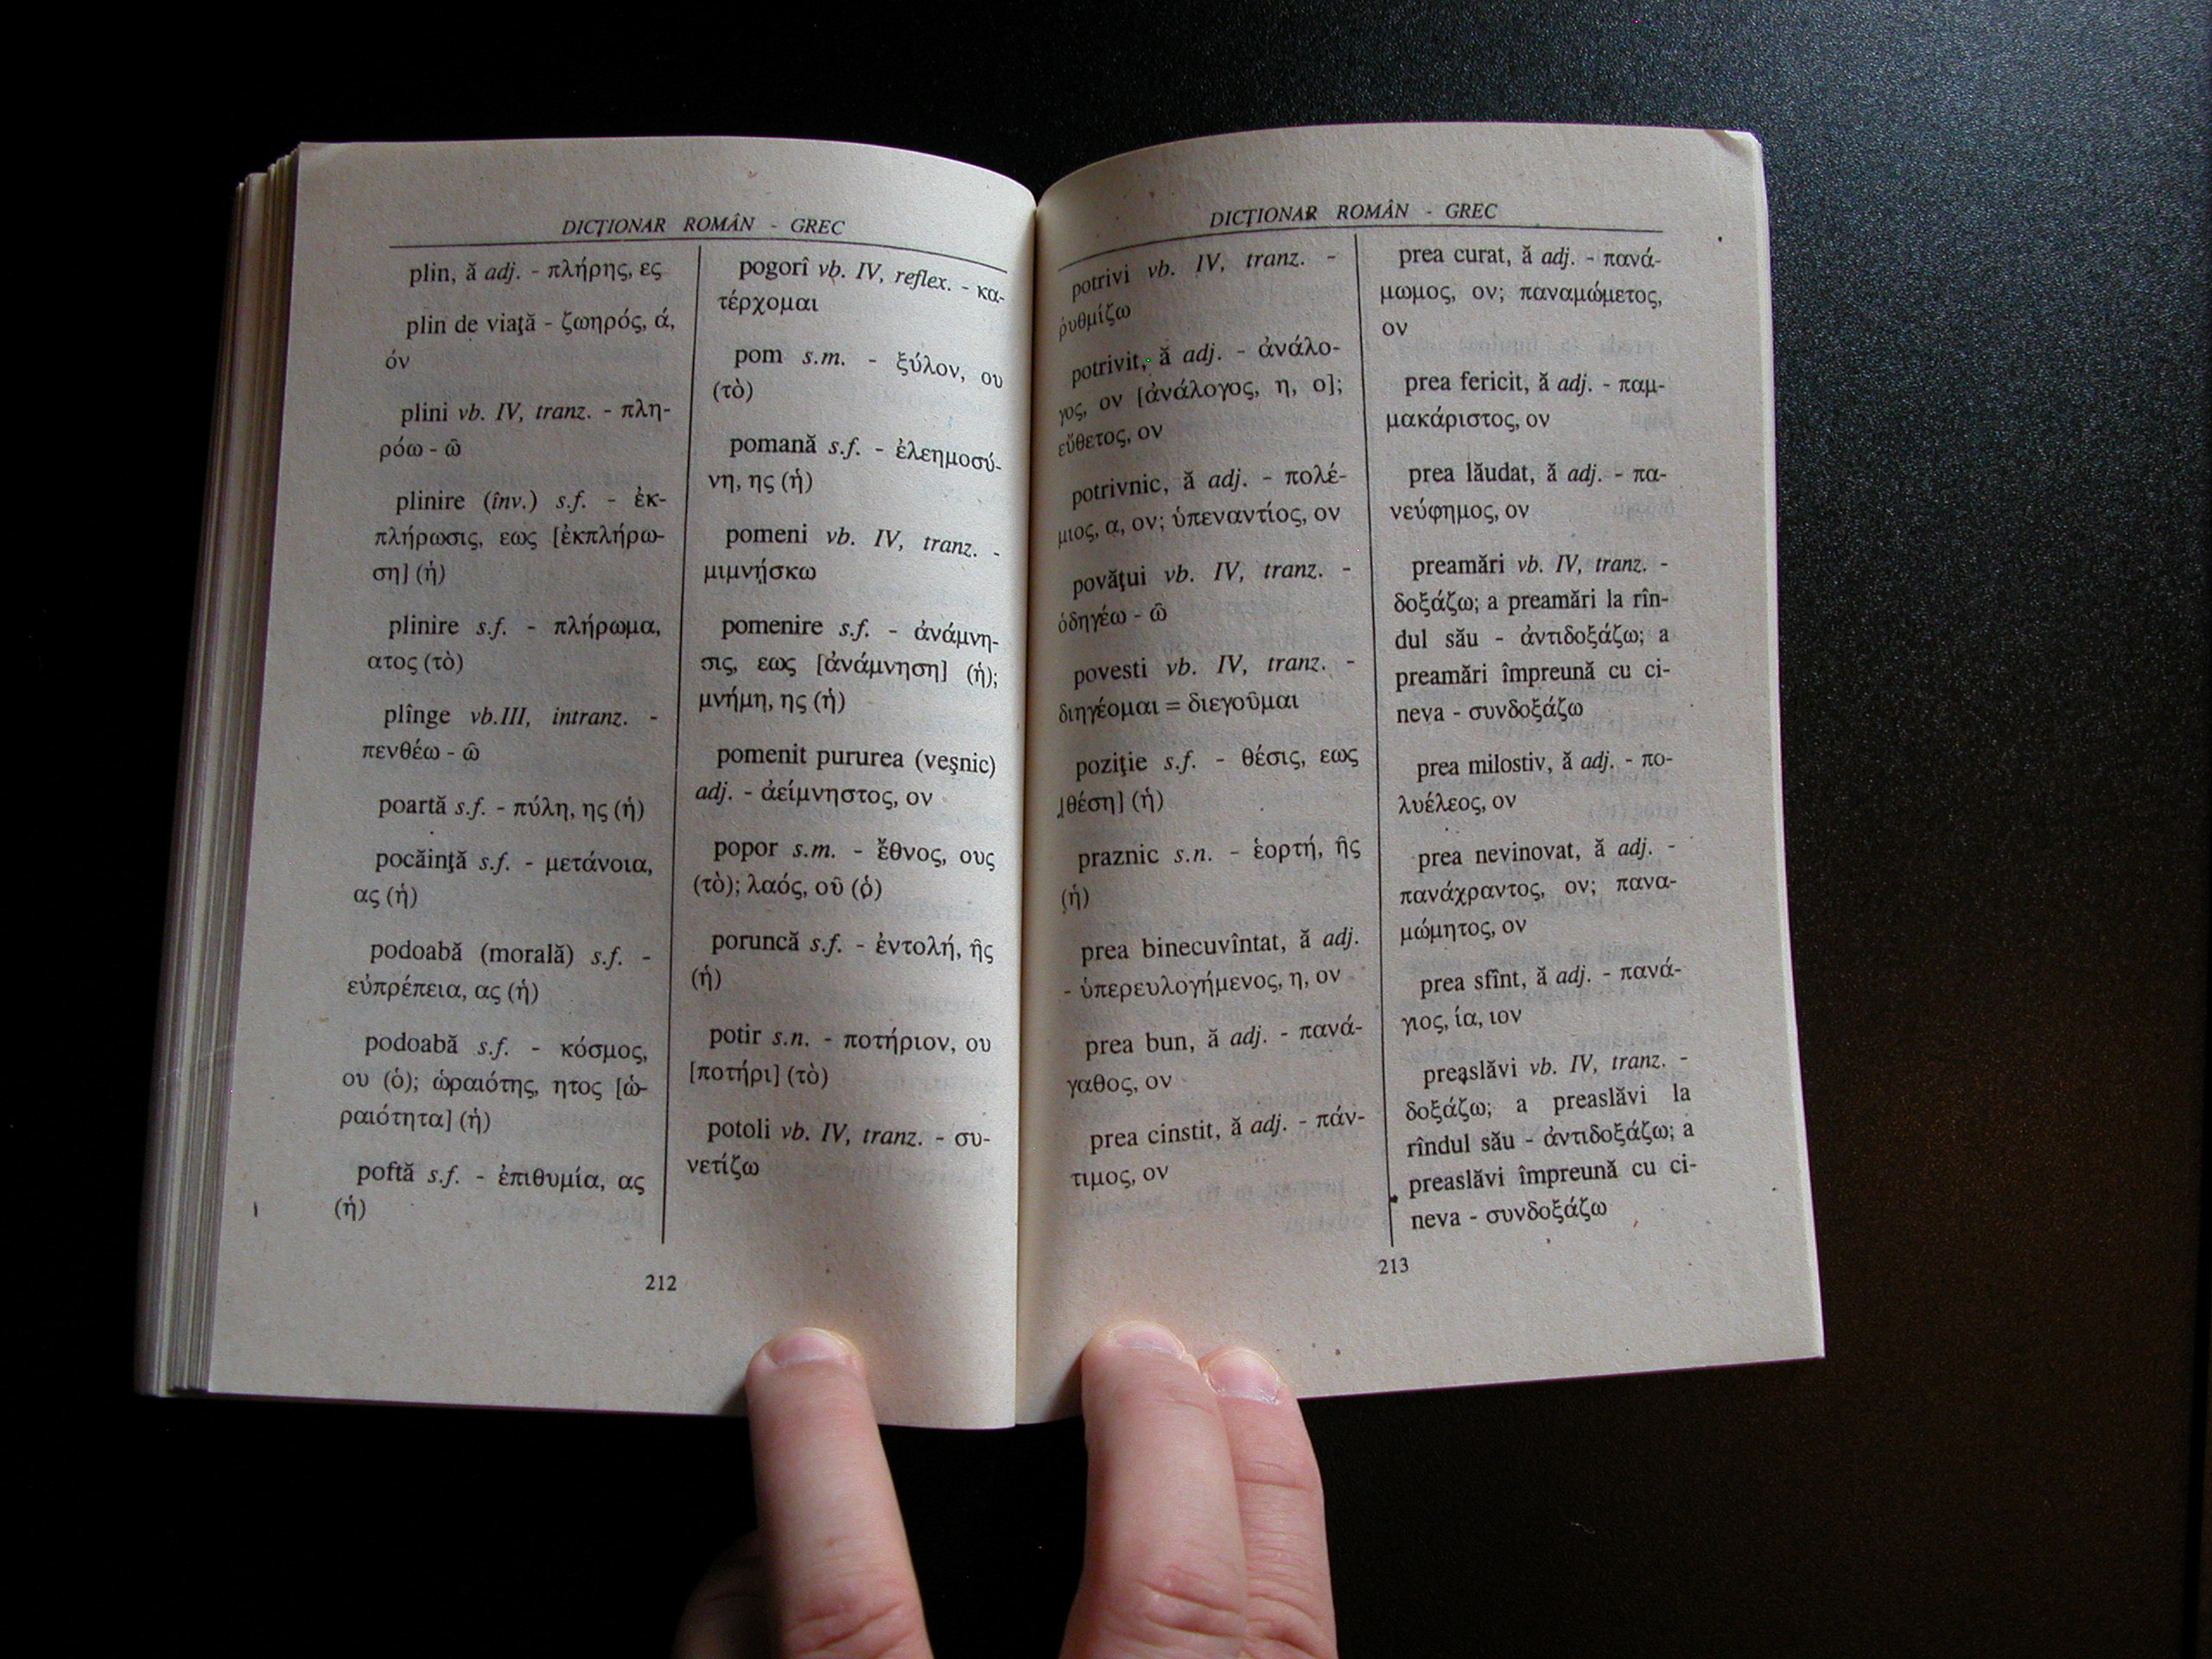 DICŢIONAR ROMÂN - GREC
plin, ă adj. - πλήρης, ες
plin de viaţă - ζωηρός, ά,
όν
plini vb. IV, tranz. - πλη-
ρόω - ῶ
plinire (înv.) s.f. - ἐκ-
πλήρωσις, εως [ἐκπλήρω-
ση] (ἡ)
plinire s.f. - πλήρωμα,
ατος (τὸ)
plînge vb.III, intranz. -
πενθέω - ῶ
poartă s.f. - πύλη, ης (ἡ)
pocăinţă s.f. - μετάνοια,
ας (ἡ)
podoabă (morală) s.f. -
εὐπρέπεια, ας (ἡ)
podoabă s.f. - κόσμος,
ου (ὁ); ὡραιότης, ητος [ὡ-
ραιότητα] (ἡ)
poftă s.f. - ἐπιθυμία, ας
(ἡ)
pogorî vb. IV, reflex. - κα-
τέρχομαι
pom s.m. - ξύλον, ου
(τὸ)
pomană s.f. - ἐλεημοσύ-
νη, ης (ἡ)
pomeni vb. IV, tranz. -
μιμνῄσκω
pomenire s.f. - ἀνάμνη-
σις, εως [ἀνάμνηση] (ἡ);
μνήμη, ης (ἡ)
pomenit pururea (veşnic)
adj. - ἀείμνηστος, ον
popor s.m. - ἔθνος, ους
(τὸ); λαός, οῦ (ὁ)
poruncă s.f. - ἐντολή, ῆς
(ἡ)
potir s.n. - ποτήριον, ου
[ποτήρι] (τὸ)
potoli vb. IV, tranz. - συ-
νετίζω
212
DICŢIONAR ROMÂN - GREC
potrivi vb. IV, tranz. -
ρυθμίζω
potrivit, ă adj. - ἀνάλο-
γος, ον [ἀνάλογος, η, ο];
εὔθετος, ον
potrivnic, ă adj. - πολέ-
μιος, α, ον; ὑπεναντίος, ον
povăţui vb. IV, tranz. -
ὁδηγέω - ῶ
povesti vb. IV, tranz. -
διηγέομαι = διεγοῦμαι
poziţie s.f. - θέσις, εως
[θέση] (ἡ)
praznic s.n. - ἑορτή, ῆς
(ἡ)
prea binecuvîntat, ă adj.
- ὑπερευλογήμενος, η, ον
prea bun, ă adj. - πανά-
γαθος, ον
prea cinstit, ă adj. - πάν-
τιμος, ον
prea curat, ă adj. - πανά-
μωμος, ον; παναμώμετος,
ον
prea fericit, ă adj. - παμ-
μακάριστος, ον
prea lăudat, ă adj. - πα-
νεύφημος, ον
preamări vb. IV, tranz. -
δοξάζω; a preamări la rîn-
dul său - ἀντιδοξάζω; a
preamări împreună cu ci-
neva - συνδοξάζω
prea milostiv, ă adj. - πο-
λυέλεος, ον
prea nevinovat, ă adj. -
πανάχραντος, ον; πανα-
μώμητος, ον
prea sfînt, ă adj. - πανά-
γιος, ία, ιον
preaslăvi vb. IV, tranz. -
δοξάζω; a preaslăvi la
rîndul său - ἀντιδοξάζω; a
preaslăvi împreună cu ci-
neva - συνδοξάζω
213